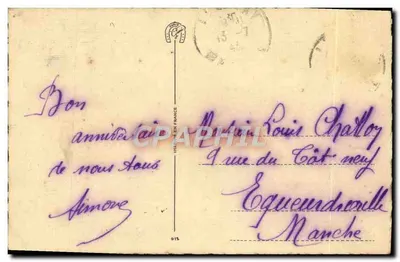 Bon
anniversaire
de nous tous
Simone
Louis Chálloy
9 rue du Tôt neuf
Equeurdreville
Manche
CPAPHIL.com
975